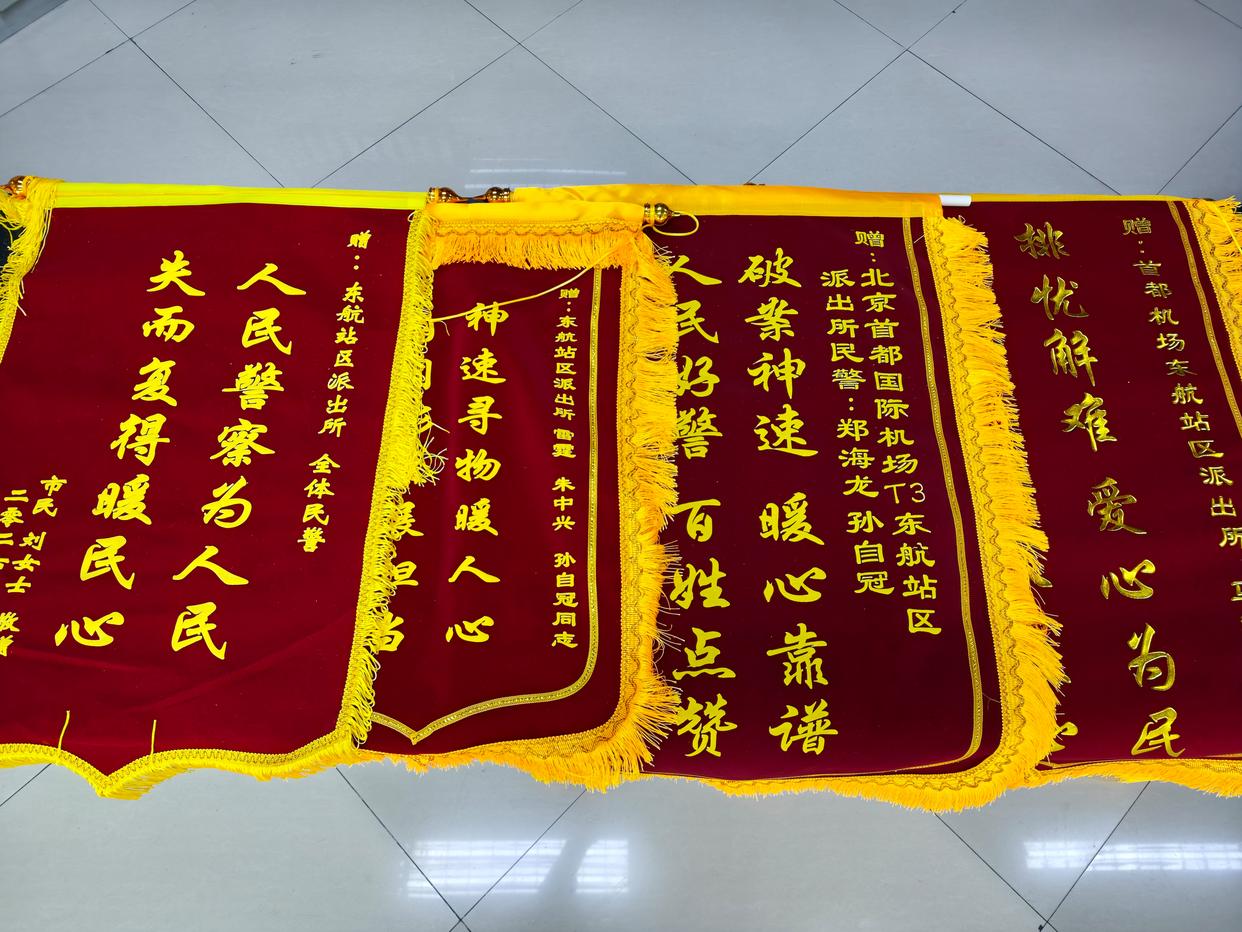 赠：东航站区派出所 全体民警
人民警察为人民
失而复得暖民心
市民 刘女士
赠：东航站区派出所 雷霆 朱中兴 孙自冠同志
神速寻物暖人心
赠：北京首都国际机场T3东航站区
派出所民警：郑海龙 孙自冠
破案神速 暖心靠谱
人民好警 百姓点赞
赠：首都机场东航站区派出所
排忧解难 爱心为民